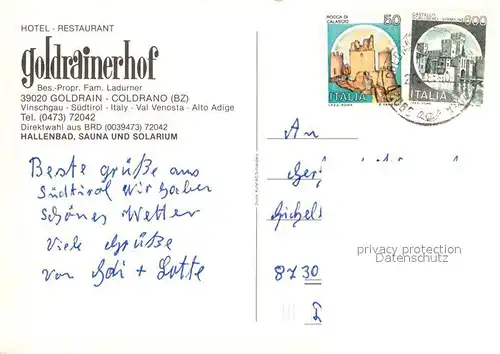 HOTEL - RESTAURANT
goldrainerhof
Bes.-Propr. Fam. Ladurner
39020 GOLDRAIN - COLDRANO (BZ)
Vinschgau - Südtirol - Italy - Val Venosta - Alto Adige
Tel. (0473) 72042
Direktwahl aus BRD (0039473) 72042
HALLENBAD, SAUNA UND SOLARIUM
Beste Grüße aus
Südtirol Wir haben
schönes Wetter
Viele Grüße
von + Lotte
ROCCA DI
CALASCIO
50
ITALIA
ITALIA
An
8730
privacy protection
Datenschutz